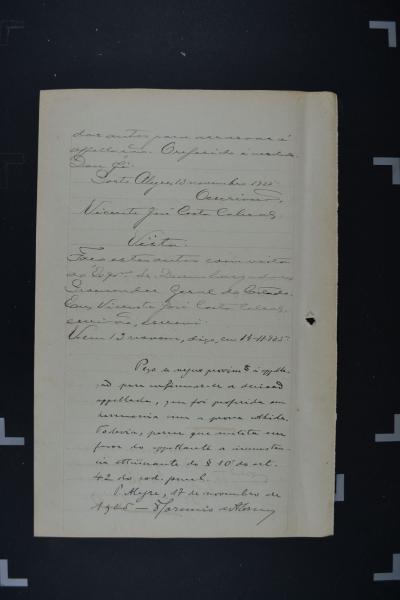 dos autos para arrazoar á
appellação. O referido é verdade.
Dou fé.
Porto Alegre, 13 novembro 1925
O escrivão,
Vicente José Costa Cabral
Vista
Faço estes autos com vista
ao Exmº. Sr. Desembargador
Procurador Geral do Estado.
Eu, Vicente José Costa Cabral,
escrivão, escrevi.
V. em 13 novem, digo, em 14-11-925
Peço se negue provimtº á appella-
ção para confirmar-se a decisão
appellada, que foi proferida em
harmonia com a prova
Todavia, parece que milita em
favor do appellante a circumstan-
cia attenuante do § 10 do art.
42 do cod. penal.
P. Alegre, 17 de novembro de
1925 —